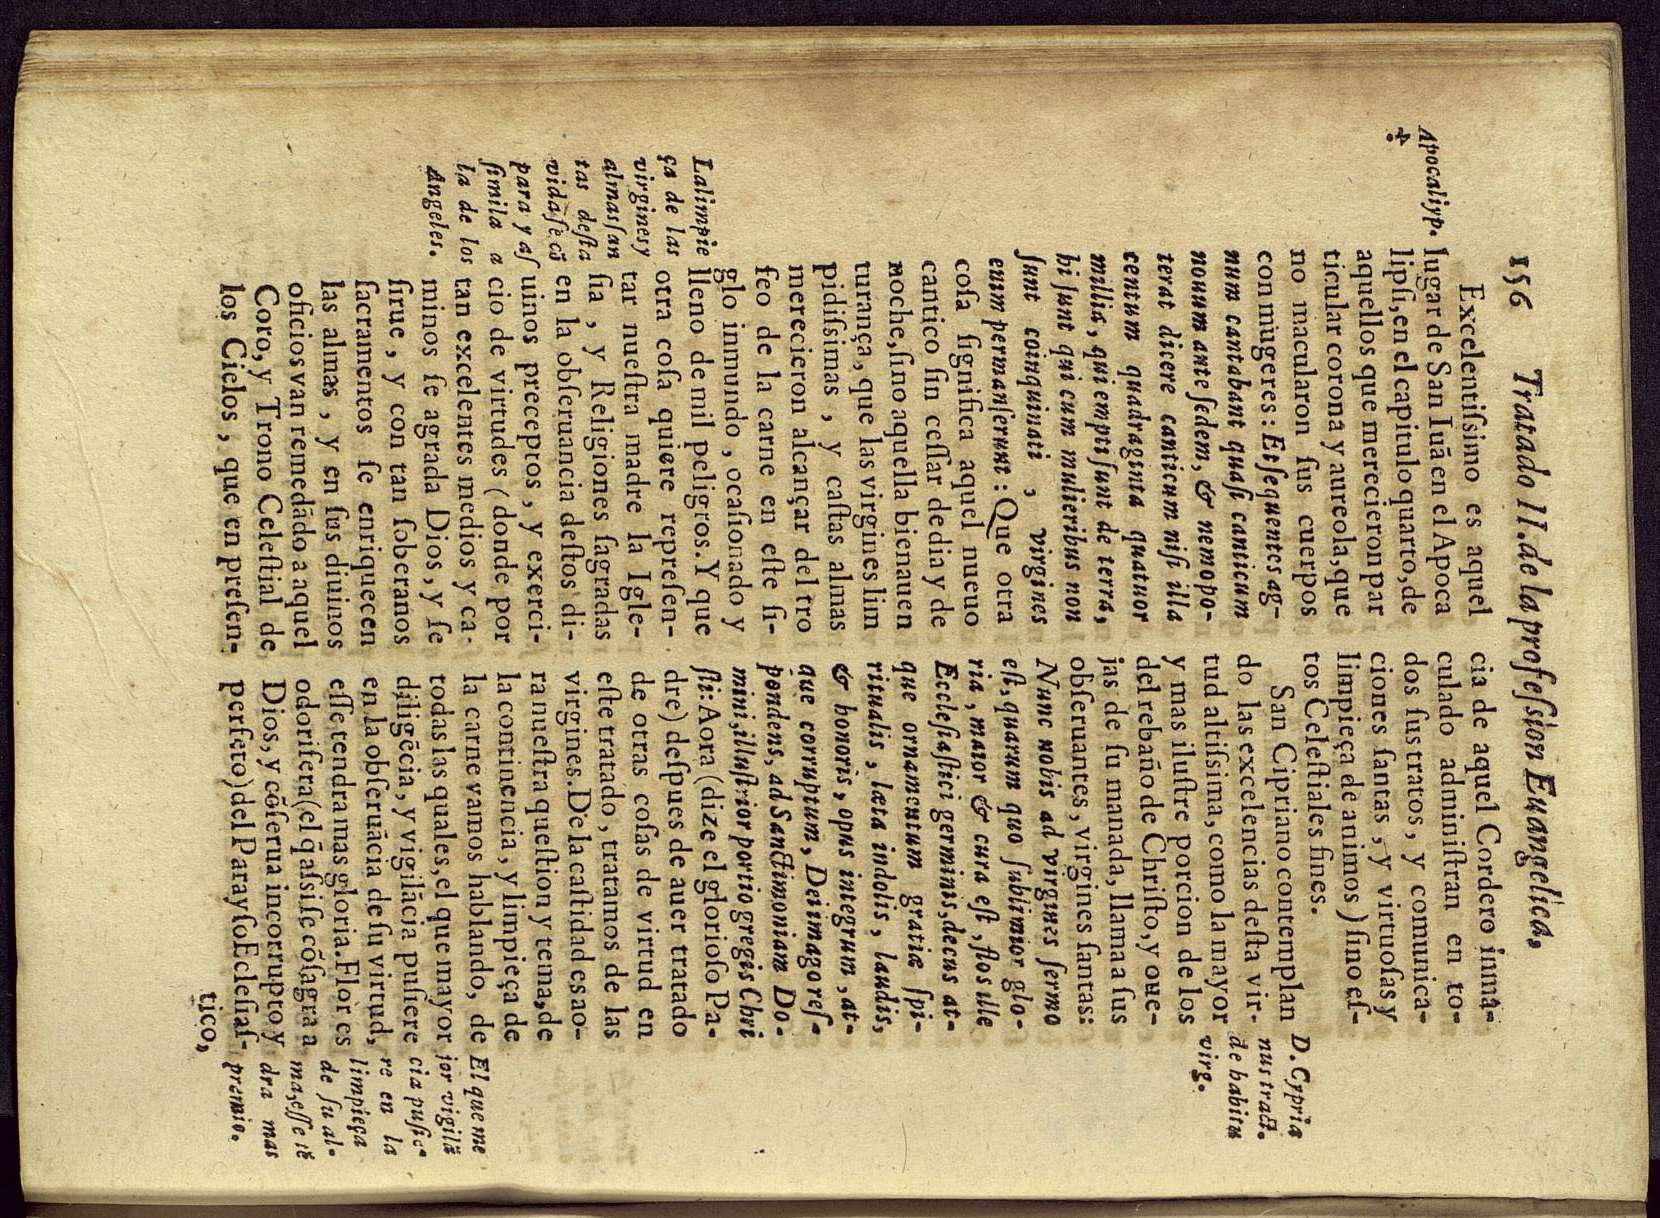 156 Tratado II. de la profeſsion Euangelica,
Apocalipſ.
÷
Excelentiſsimo es aquel
lugar de San Iuā en el Apoca
lipſi, en el capitulo quarto, de
aquellos que merecieron par
ticular corona y aureola, que
no macularon ſus cuerpos
con mugeres: Et ſequentes ag-
num cantabant quaſi canticum
nouum ante ſedem, & nemo po-
terat dicere canticum niſi illa
centum quadraginta quatuor
millia, qui empti ſunt de terra,
hi ſunt qui cum mulieribus non
ſunt coinquinati, virgines
enim permanſerunt: Que otra
coſa ſignifica aquel nueuo
cantico ſin ceſſar de dia y de
noche, ſino aquella bienauen
turança, que las virgines lim
pidiſsimas, y caſtas almas
merecieron alcançar del tro
feo de la carne en eſte ſi-
glo inmundo, ocaſionado y
lleno de mil peligros. Y que
otra coſa quiere repreſen-
tar nueſtra madre la Igle-
ſia, y Religiones ſagradas
en la obſeruancia deſtos di-
uinos preceptos, y exerci-
cio de virtudes (donde por
tan excelentes medios y ca-
minos ſe agrada Dios, y ſe
ſirue, y con tan ſoberanos
ſacramentos ſe enriquecen
las almas, y en ſus diuinos
oficios van remedādo a aquel
Coro, y Trono Celeſtial de
los Cielos, que en preſen-
La limpie
ça de las
virgines y
almas ſan
tas deſta
vida ſe cō
para y aſ
ſimila a
la de los
Angeles.
cia de aquel Cordero inma-
culado adminiſtran en to-
dos ſus tratos, y comunica-
ciones ſantas, y virtuoſas y
limpieça de animos) ſino eſ-
tos Celeſtiales fines.
San Cipriano contemplan
do las excelencias deſta vir-
tud altiſsima, como la mayor
y mas iluſtre porcion de los
del rebaño de Chriſto, y oue-
jas de ſu manada, llama a ſus
obſeruantes, virgines ſantas:
Nunc nobis ad virgines ſermo
eſt, quarum quo ſublimior glo-
ria, maior & cura eſt, flos ille
Eccleſiaſtici germinis, decus at-
que ornamentum gratiæ ſpi-
ritualis, læta indolis, laudis,
& honoris, opus integrum, at-
que corruptum, Dei imago reſ-
pondens, ad Sanctimoniam Do-
mini, illuſtrior portio gregis Chri
ſti: Aora (dize el glorioſo Pa-
dre) deſpues de auer tratado
de otras coſas de virtud en
eſte tratado, tratamos de las
virgines. De la caſtidad es ao-
ra nueſtra queſtion y tema, de
la continencia, y limpieça de
la carne vamos hablando, de
todas las quales, el que mayor
diligēcia, y vigilācia puſiere
en la obſeruācia de ſu virtud,
eſſe tendra mas gloria. Flor es
odorifera (el q̄ aſsi ſe cōſagra a
Dios, y cōſerua incorrupto y
perfeto) del Parayſo Ecleſiaſ-
tico,
D. Cypria
nus tract.
de habitu
virg.
El que me
jor vigilā
cia puſie-
re en la
limpieça
de ſu al-
ma, eſſe tē
dra mas
premio.